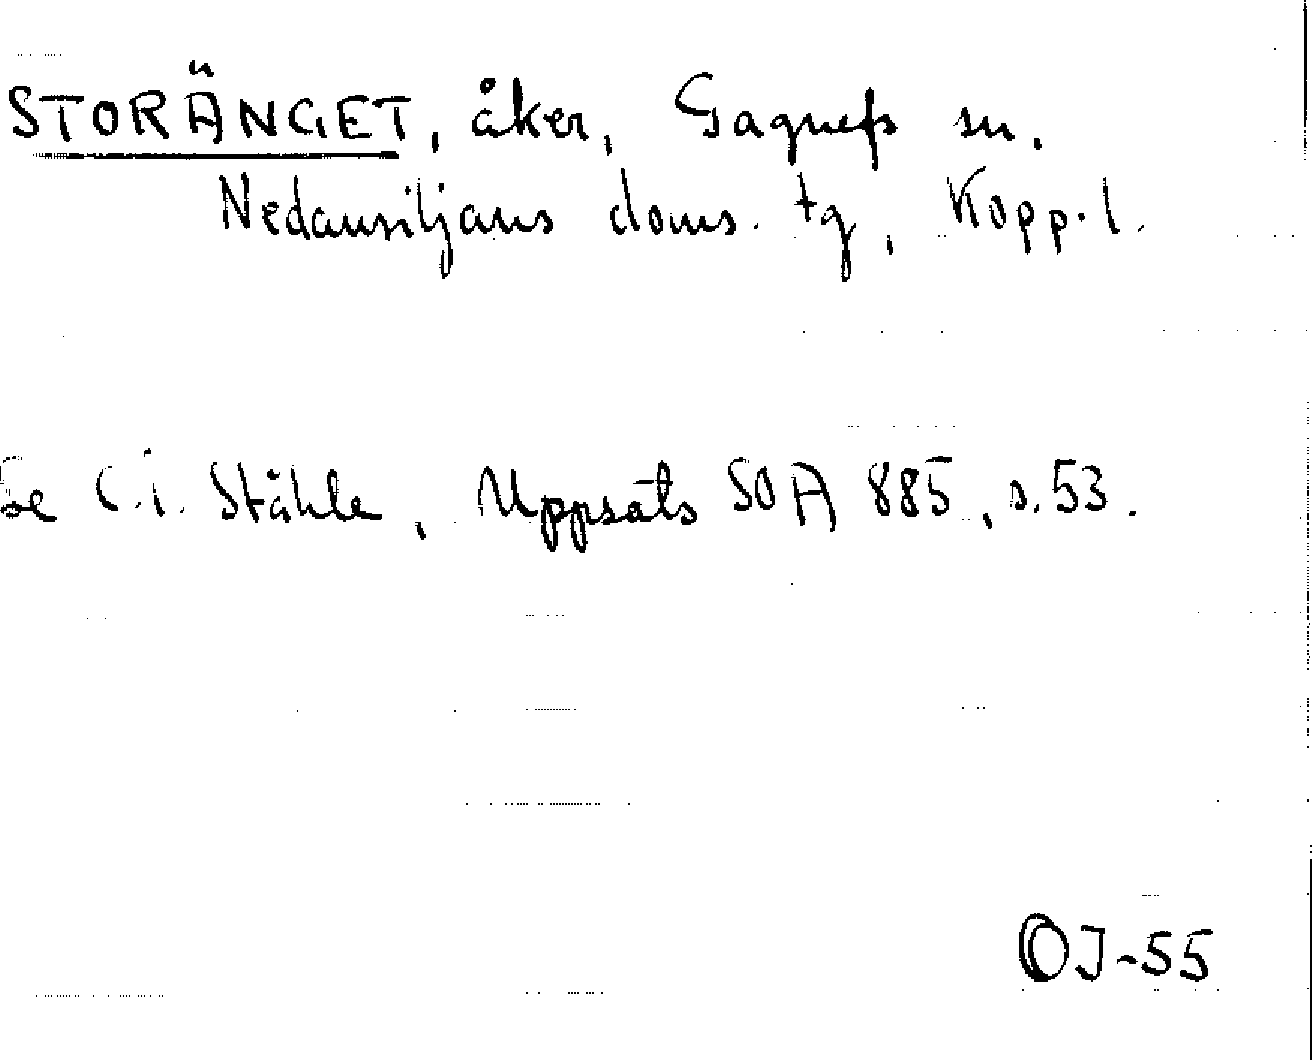 STORÄNGET, åker, Gagnefs sn.
Nedansiljans doms. tg, Kopp. l.
Se C.I. Ståhle, Uppsats SOA 885, s. 53.
OJ-55